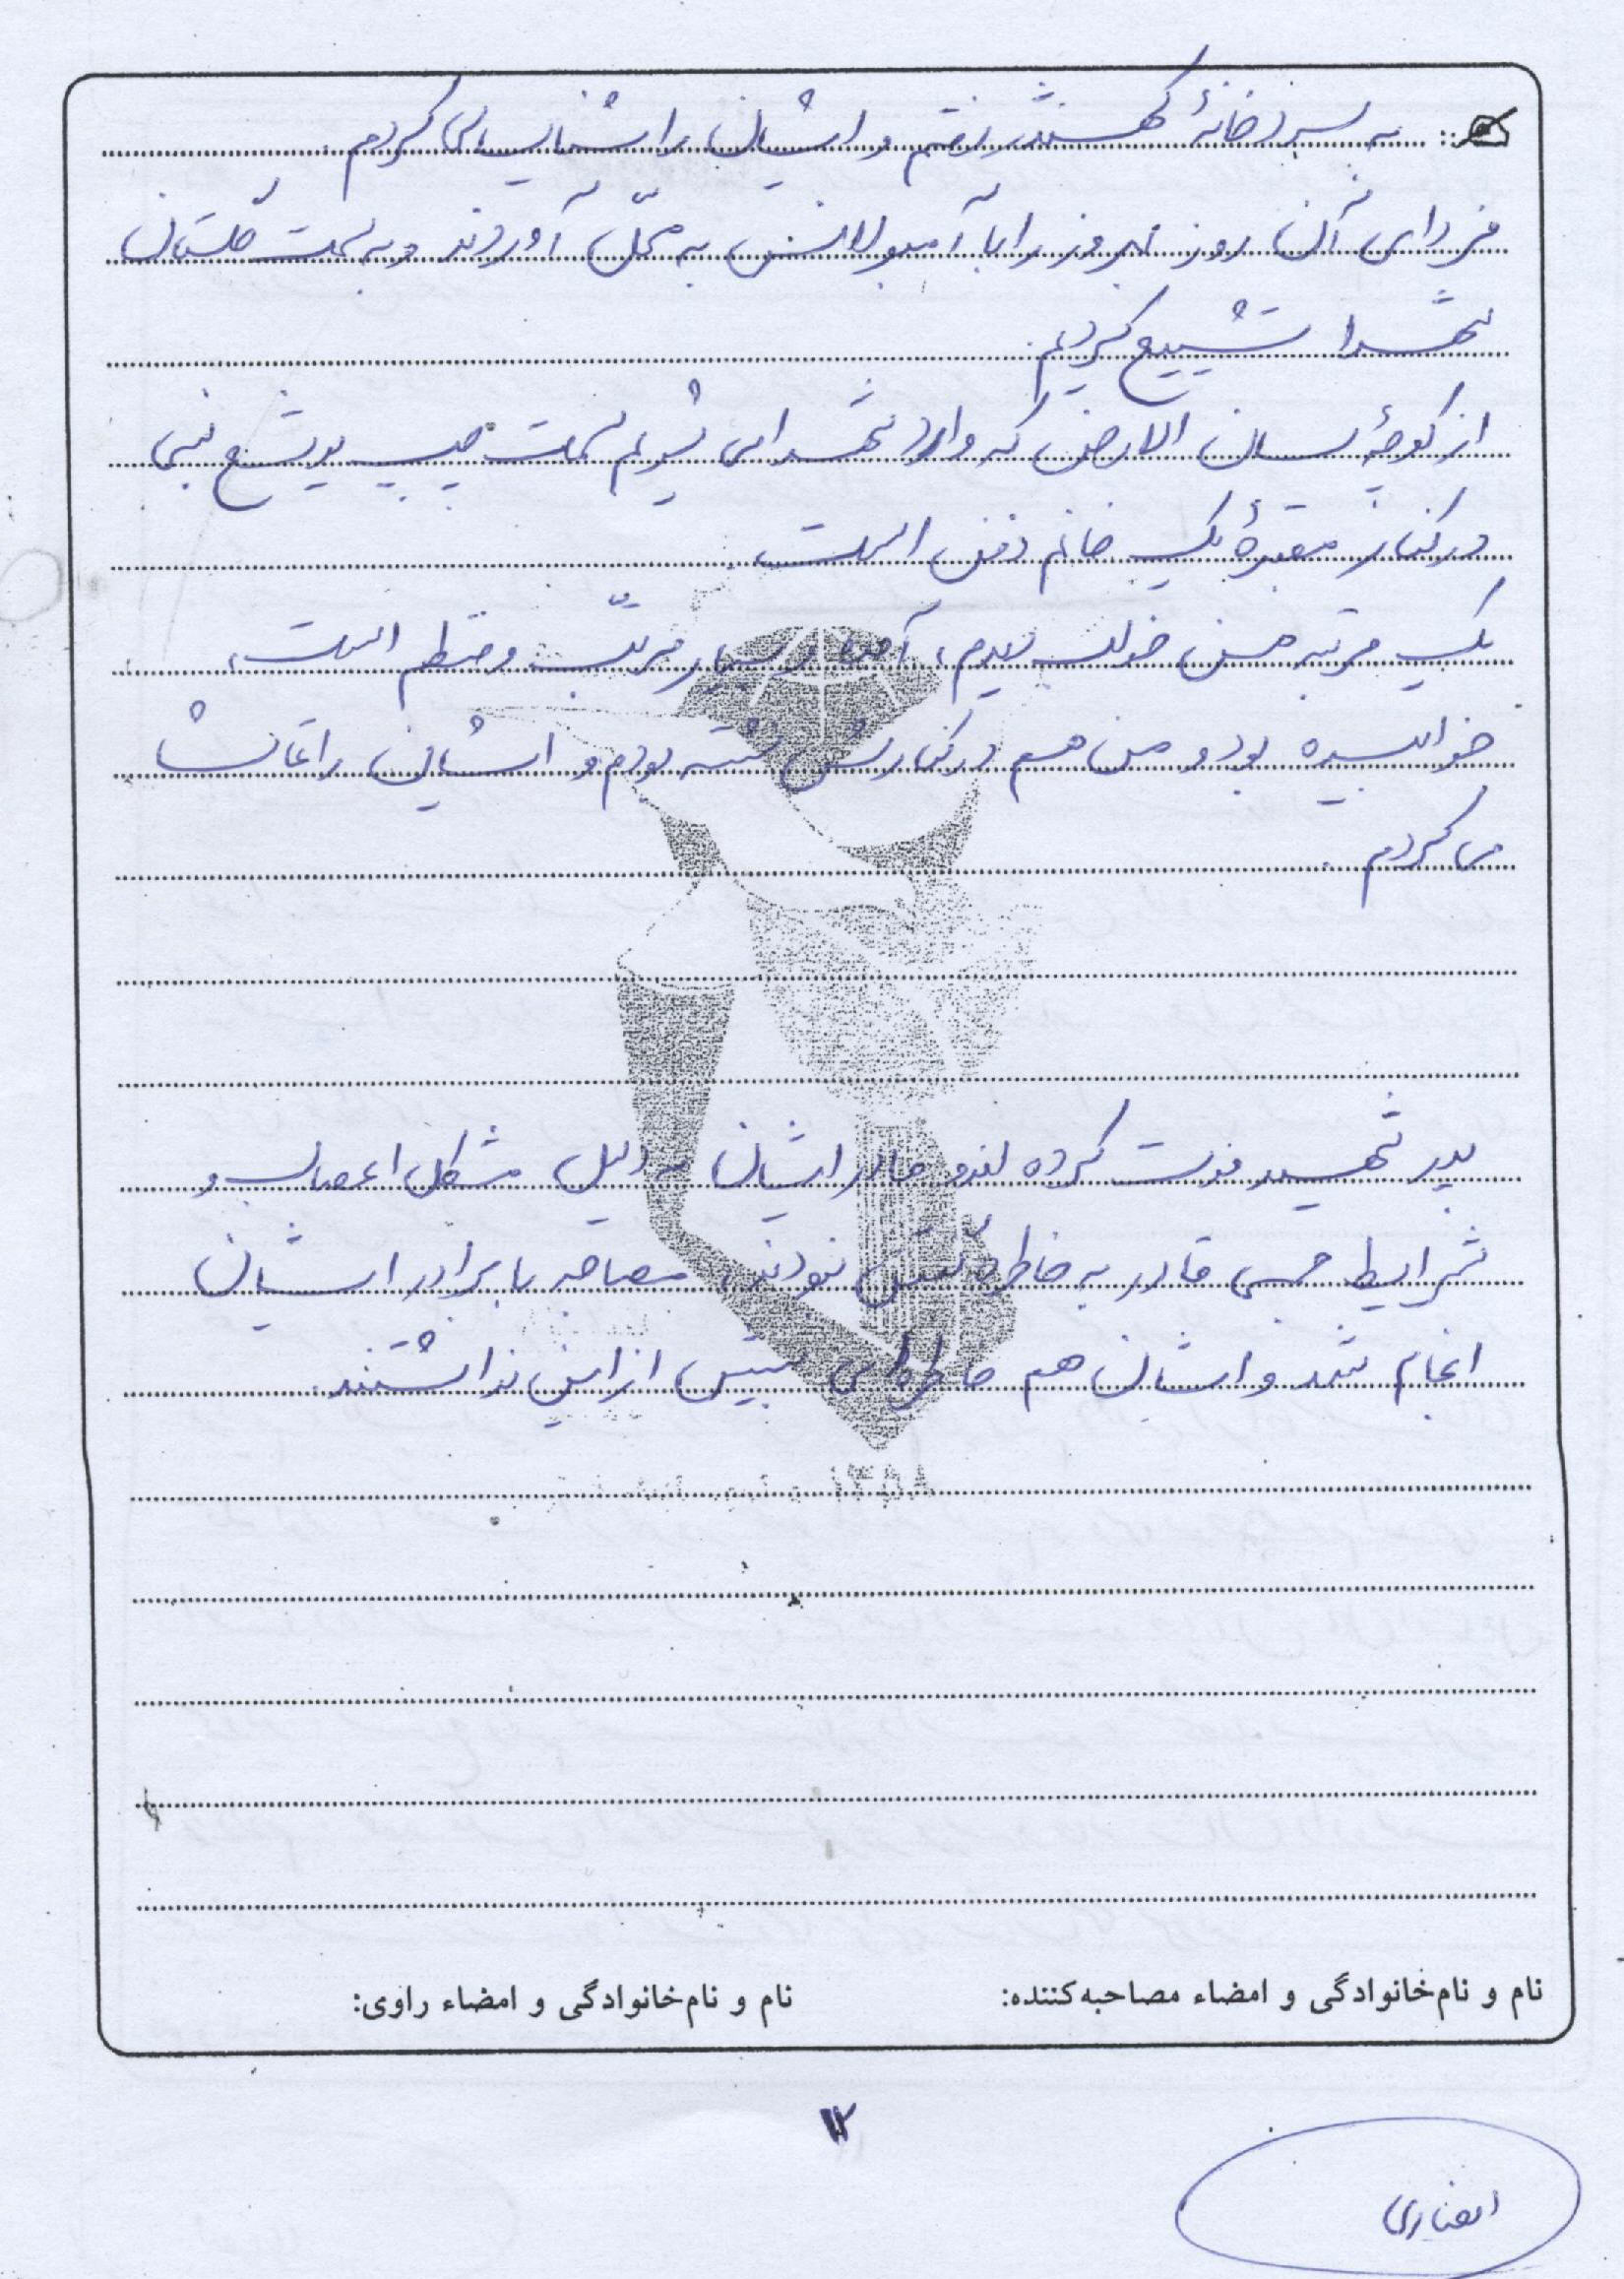 به سردخانهٔ کهندژ رفتم و ایشان را شناسایی کردم.
فردای آن روز بهروز را با آمبولانس به محل آوردند و به سمت گلستان
شهدا تشییع کردیم.
از کوچهٔ لسان الارض که وارد شهدا می شویم سمت چپ یوشع نبی
در کنار مقبرهٔ یک خانم دفن است.
یک مرتبه من خواب دیدم، آمده و بسیار مرتّب و منظم است،
خوابیده بود و من هم در کنارش نشسته بودم و ایشان را تماشا
می کردم.
پدر شهید فوت کرده اند و مادر ایشان به دلیل مشکل اعصاب و
شرایط جسمی قادر به خاطره گفتن نبودند، مصاحبه با برادر ایشان
انجام شد و ایشان هم خاطره ای بیش از این نداشتند.
۱۳۵۸
نام و نام‌خانوادگی و امضاء مصاحبه‌کننده: نام و نام‌خانوادگی و امضاء راوی:
۱۲